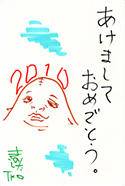 あけまして
おめでとう。
2010